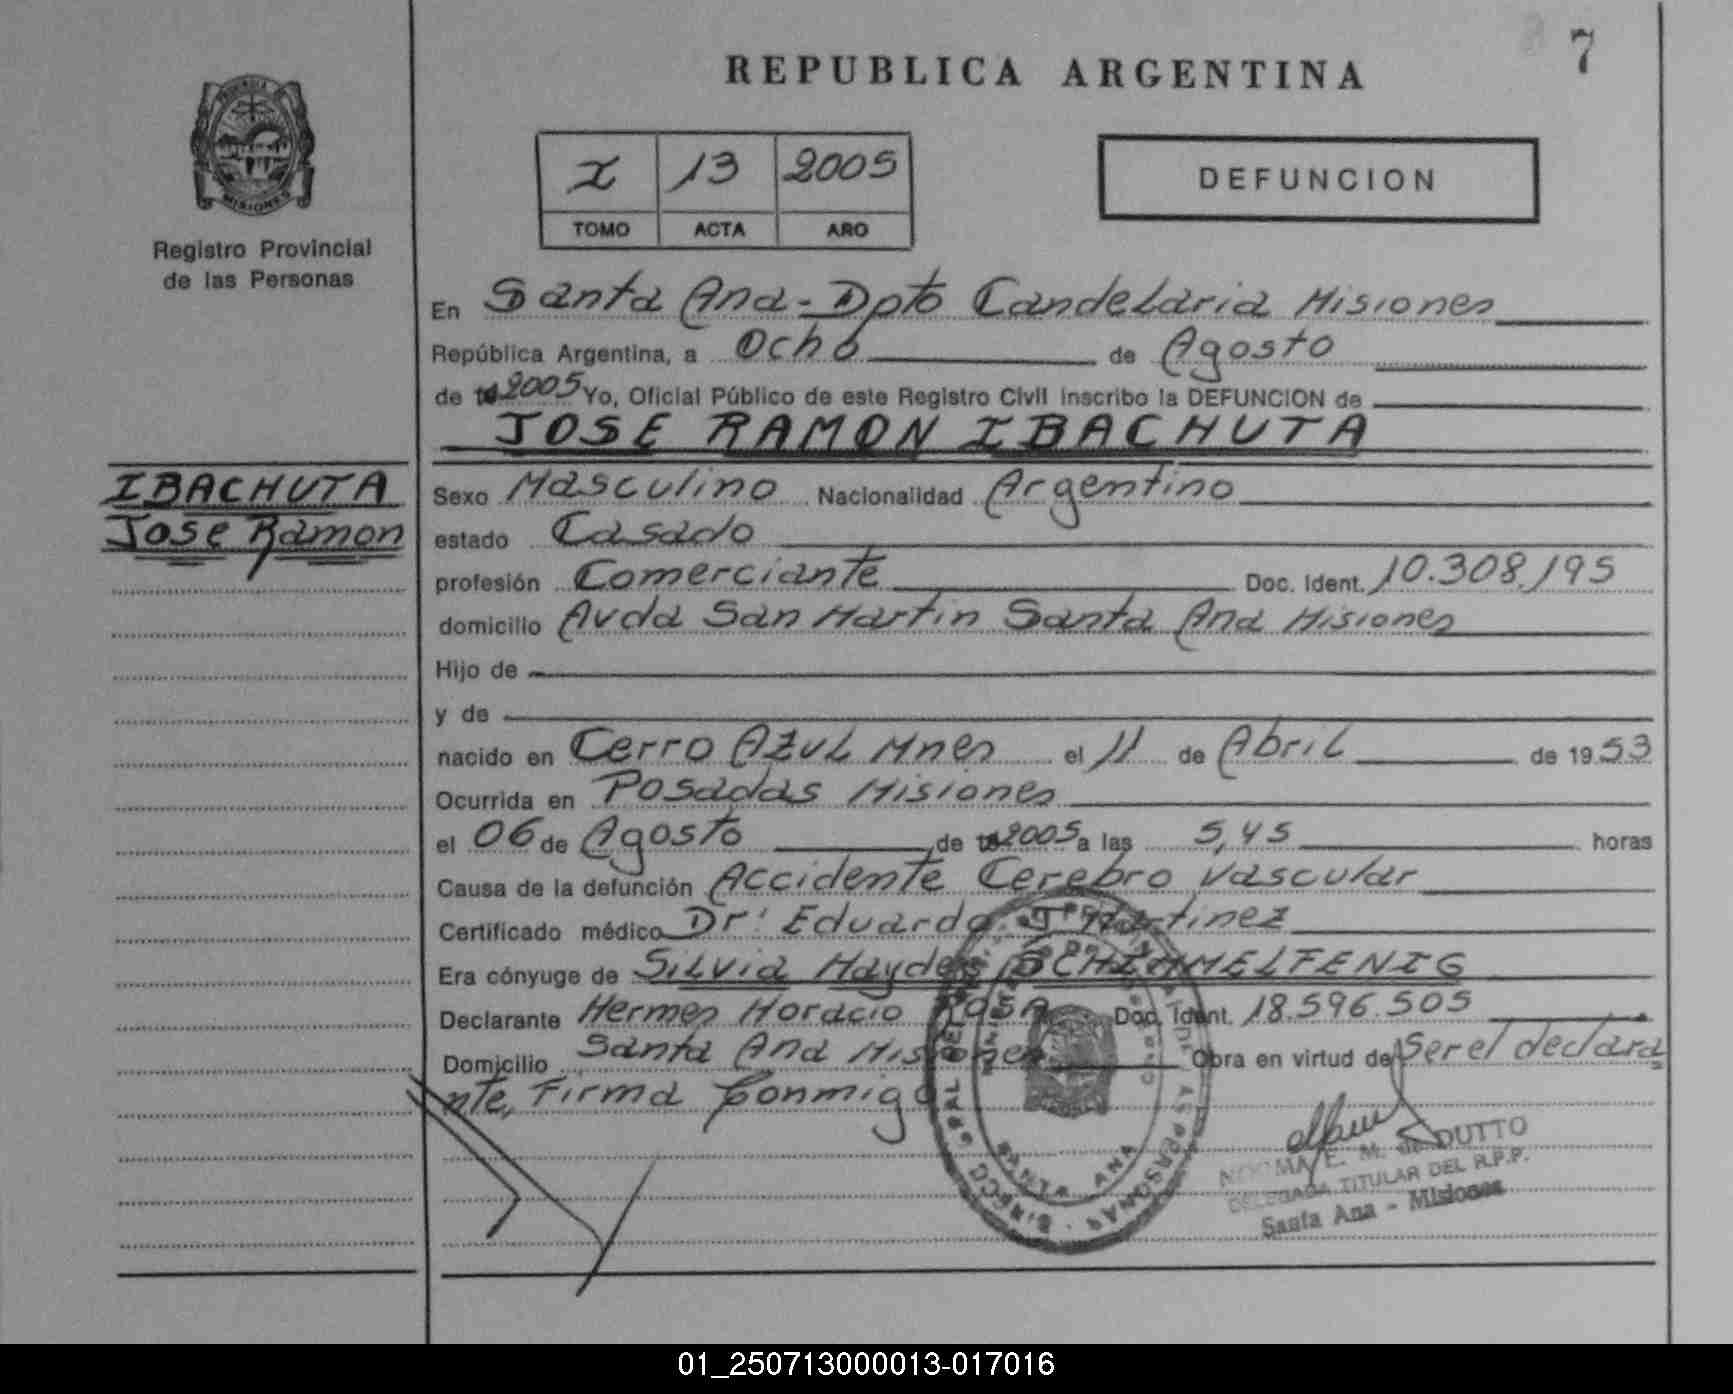 7
REPUBLICA ARGENTINA
PROVINCIA DE MISIONES
I 13 2005
TOMO ACTA AÑO
DEFUNCION
Registro Provincial
de las Personas
En Santa Ana - Dpto Candelaria Misiones
República Argentina, a Ocho de Agosto
de 2005 Yo, Oficial Público de este Registro Civil inscribo la DEFUNCION de
JOSE RAMON IBACHUTA
IBACHUTA
Jose Ramon
Sexo Masculino Nacionalidad Argentino
estado Casado
profesión Comerciante Doc. Ident. 10.308.195
domicilio Avda San Martin Santa Ana Misiones
Hijo de
y de
nacido en Cerro Azul Mnes el 11 de Abril de 1953
Ocurrida en Posadas Misiones
el 06 de Agosto de 2005 a las 5,45 horas
Causa de la defunción Accidente Cerebro Vascular
Certificado médico Dr. Eduardo J Martinez
Era cónyuge de Silvia Haydee SCHIMMELFENIG
Declarante Hermes Horacio Rosa Doc. Ident. 18.596.505
Domicilio Santa Ana Misiones Obra en virtud de Ser el declara
nte, Firma Conmigo
SANTA ANA
NORMA E. M. de DUTTO
DELEGADA TITULAR DEL R.P.P.
Santa Ana - Misiones
01_250713000013-017016